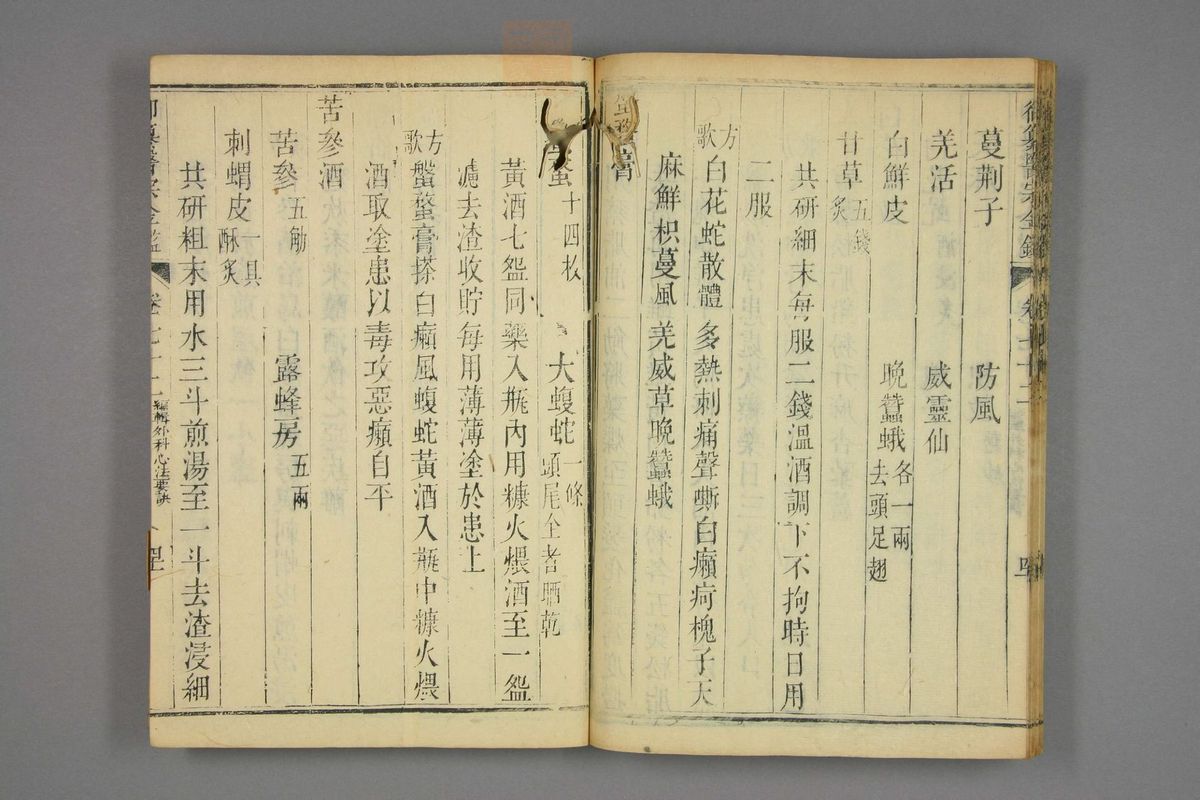 蔓荊子 防風
羌活 威靈仙
白鮮皮 晚蠶蛾各一兩去頭足翅
甘草炙五錢
共研細末每服二錢溫酒調下不拘時日用
二服
方歌白花蛇散體多熱刺痛聲嘶白癩疴槐子天
麻鮮枳蔓風羌威草晚蠶蛾
膏
十四枚 大蝮蛇一條頭尾全者晒乾
黃酒七碗同藥入瓶內用糠火煨酒至一碗
濾去渣收貯每用薄薄塗於患上
方歌蝥膏搽白癩風蝮蛇黃酒入瓶中糠火煨
酒取塗患以毒攻惡癩自平
苦參酒
苦參五觔 露蜂房五兩
刺蝟皮一具酥炙
共研粗末用水三斗煎湯至一斗去渣浸細
編輯外科心法要訣